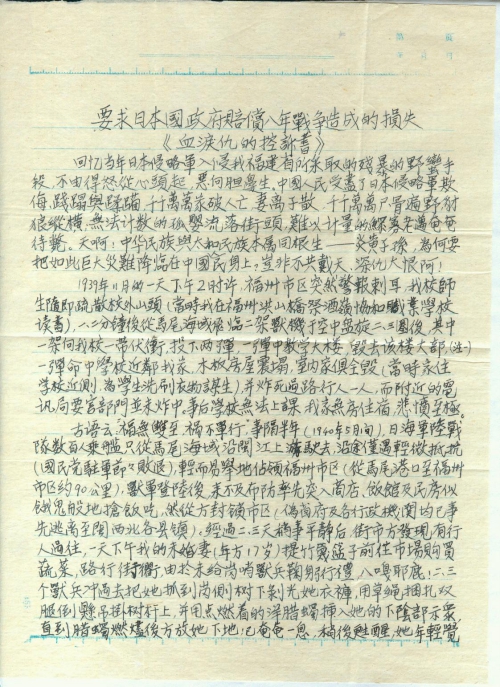 要求日本國政府賠償八年戰争造成的損失
《血淚仇的控訴書》
回忆当年日本侵略軍入侵我福建省所采取的殘暴的野蠻手
段，不由得怒从心頭起，惡向胆邊生，中國人民受盡了日本侵略軍欺
侮，踐踏與蹂躪，千千萬萬家破人亡妻离子散，千千萬萬尸骨遍野豺
狼縱横，無法計数的孤孾流落街頭，難以計量的鰥寡老邁奄奄
待斃。天啊！中华民族與大和民族本属同根生——炎黄子孫，為何要
把如此巨大災難降临在中國人民身上，豈非不共戴天，深仇大恨阿！
1939年11月的一天下午2时许，福州市区突然警報刺耳，我校師
生随即疏散校外山頭（當時我在福州洪山橋祭酒嶺協和職業學校
读書），一二分鐘後從馬尾海域飛临二架獸機於空中盘旋一、二圈後，其中
一架向我校一带伏衝，投下两弹，一弹中教学大楼，毁去该楼大部，（注）
一弹命中学校近鄰我家，木板房屋震塌，室内家俱全毁（當時家住
学校近侧，為學生洗刷衣物謀生），并炸死過路行人一人，而附近的電
讯局要害部門並未炸中，事后学校無法上課，我家無房住宿，悲憤至極。
古语云，福無雙至，禍不單行，事隔半年（1940年5月间），日海軍陸戰
隊数百人乘艦只從馬尾海域沿閩江上溯駛去，沿途僅遇輕微抵抗
（國民党駐軍節々敗退），輕而易舉地佔領福州市区（從馬尾港口至福州
市区约90公里），獸軍登陸後，来不及布防率先突入商店、飯館及民房似
餓鬼般地搶飯吃，然從方封領市区（偽省府及各行政機関均已事
先逃离至閩西北各县鎮），經過二、三天稍事平静后，街市方發現有行
人過往，一天下午我的未婚妻（年方17岁）提竹籃孟子前往市場購買
蔬菜，路行街衢，由於未给崗哨獸兵鞠躬行禮，八嘎耶鹿！二、三
个獸兵冲過去把她抓到崗侧树下剝光她衣褲，用草绳捆扎双
腿倒懸吊掛树杆上，并用点燃着的洋腊蠋挿入她的下陰部示衆，
直到腊蠋燃燼後方放她下地；已奄奄一息，稍後甦醒，她年輕覺